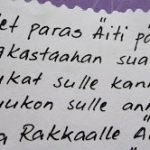 let paras Äiti pä
gkastaahan sua
ukat sulle kann
uukon sulle ann
a Rakkaalle Ä